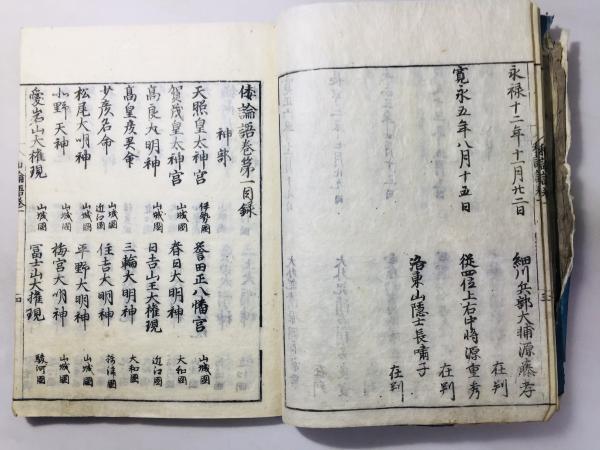 永禄十二年十一月廿二日
細川兵部大輔源藤孝
在判
従四位上右中将源重秀
在判
寛永五年八月十五日
洛東山隠士長嘯子
在判
倭論語巻第一目録
神部
天照皇太神宮 伊勢國
誉田正八幡宮 山城國
賀茂皇太神宮 山城國
春日大明神 大和國
高良大明神 山城國
日吉山王大権現 近江國
高皇産灵命
三輪大明神 大和國
少彦名命 山城國 近江國
住吉大明神 摂津國
松尾大明神 山城國
平野大明神 山城國
小野天神 山城國
梅宮大明神 山城國
愛宕山大権現 山城國
冨士山大権現 駿河國